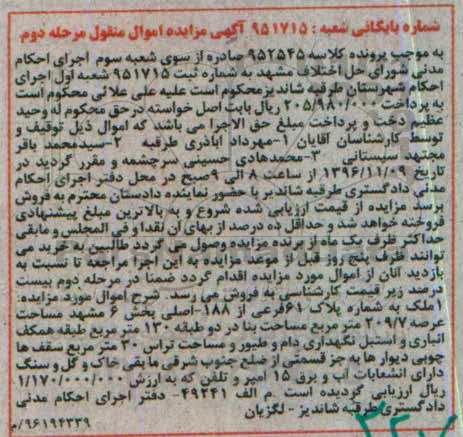 شماره بایگانی شعبه : ۹۵۱۷۱۵ آگهی مزایده اموال منقول مرحله دوم
به موجب پرونده کلاسه ۹۵۲۵۴۵ صادره از سوی شعبه سوم اجرای احکام
مدنی شورای حل اختلاف مشهد به شماره ثبت ۹۵۱۷۱۵ شعبه اول اجرای
احکام شهرستان طرقبه شاندیزمحکوم است علیه علی علائی محکوم است
به پرداخت ۲۰۵/۹۸۰/۰۰۰ ریال بابت اصل خواسته درحق محکوم له وحید
عظیم دخت و پرداخت مبلغ حق الاجرا می باشد که اموال ذیل توقیف و
توسط کارشناسان آقایان ۱-مهرداد اباذری طرقبه ۲-سیدمحمد باقر
مجتهد سیستانی ۳-محمدهادی حسینی سرچشمه و مقرر گردید در
تاریخ ۱۳۹۶/۱۱/۰۹ از ساعت ۸ الی ۹صبح در محل دفتر اجرای احکام
مدنی دادگستری طرقبه شاندیز با حضور نماینده دادستان محترم به فروش
برسد مزایده از قیمت ارزیابی شده شروع و به بالاترین مبلغ پیشنهادی
فروخته خواهد شد و حداقل ده درصد از بهای آن نقدا و فی المجلس و مابقی
حداکثر ظرف یک ماه از برنده مزایده وصول می گردد طالبین به خرید می
توانند ظرف پنج روز قبل از موعد مزایده به این اجرا مراجعه تا نسبت به
بازدید آنان از اموال مورد مزایده اقدام گردد ضمنا در مرحله دوم بیست
درصد زیر قیمت کارشناسی به فروش می رسد. شرح اموال مورد مزایده:
۱/ملک به شماره پلاک ۶۹فرعی از ۱۸۸-اصلی بخش ۶ مشهد مساحت
عرصه ۲۰۹/۷ متر مربع مساحت بنا در دو طبقه ۱۳۰ متر مربع طبقه همکف
انباری و استبل نگهداری دام و طیور و مساحت تراس ۳۰ متر مربع سقف ها
چوبی دیوار ها به جز قسمتی از ضلع جنوب شرقی ما بقی خاک و گل و سنگ
دارای انشعابات آب و برق ۱۵ آمپر و تلفن که به ارزش ۱/۱۷۰/۰۰۰/۰۰۰
ریال ارزیابی گردیده است .م الف ۴۹۲۴۱- دفتر اجرای احکام مدنی
دادگستری طرقبه شاندیز - لگزیان
۹۶۱۹۲۳۳۹/م